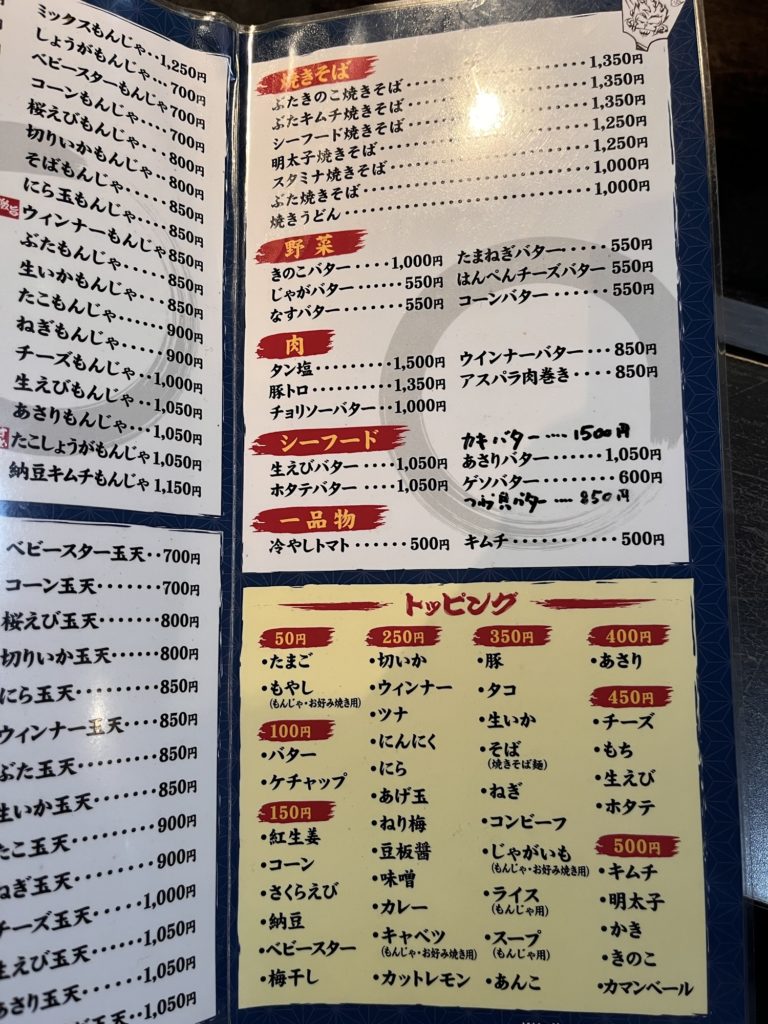 ミックスもんじゃ‥1,250円
しょうがもんじゃ…700円
ベビースターもんじゃ700円
コーンもんじゃ……700円
桜えびもんじゃ……800円
切りいかもんじゃ…800円
そばもんじゃ………850円
にら玉もんじゃ……850円
ウィンナーもんじゃ850円
ぶたもんじゃ………850円
生いかもんじゃ……850円
たこもんじゃ………900円
ねぎもんじゃ………900円
チーズもんじゃ‥1,000円
生えびもんじゃ‥1,050円
あさりもんじゃ‥1,050円
たこしょうがもんじゃ1,050円
納豆キムチもんじゃ 1,150円
ベビースター玉天‥700円
コーン玉天………700円
桜えび玉天………800円
切りいか玉天……800円
にら玉天…………850円
ウィンナー玉天…850円
ぶた玉天…………850円
生いか玉天………850円
たこ玉天…………900円
ねぎ玉天…………900円
チーズ玉天……1,000円
生えび玉天……1,050円
あさり玉天……1,050円
焼きそば
ぶたきのこ焼きそば……………1,350円
ぶたキムチ焼きそば……………1,350円
シーフード焼きそば……………1,350円
明太子焼きそば…………………1,250円
スタミナ焼きそば………………1,250円
ぶた焼きそば……………………1,000円
焼きうどん………………………1,000円
野菜
きのこバター‥‥1,000円 たまねぎバター‥‥550円
じゃがバター……550円 はんぺんチーズバター 550円
なすバター………550円 コーンバター……550円
肉
タン塩…………1,500円 ウインナーバター…850円
豚トロ…………1,350円 アスパラ肉巻き‥‥850円
チョリソーバター‥1,000円
シーフード カキバター…‥1500円
生えびバター‥‥1,050円 あさりバター……1,050円
ホタテバター‥‥1,050円 ゲソバター………600円
つぶ貝バター…‥850円
一品物
冷やしトマト……500円 キムチ…………500円
トッピング
50円
・たまご
・もやし
(もんじゃ・お好み焼き用)
100円
・バター
・ケチャップ
150円
・紅生姜
・コーン
・さくらえび
・納豆
・ベビースター
・梅干し
250円
・切いか
・ウィンナー
・ツナ
・にんにく
・にら
・あげ玉
・ねり梅
・豆板醤
・味噌
・カレー
・キャベツ
(もんじゃ・お好み焼き用)
・カットレモン
350円
・豚
・タコ
・生いか
・そば
(焼きそば麺)
・ねぎ
・コンビーフ
・じゃがいも
(もんじゃ・お好み焼き用)
・ライス
(もんじゃ用)
・スープ
(もんじゃ用)
・あんこ
400円
・あさり
450円
・チーズ
・もち
・生えび
・ホタテ
500円
・キムチ
・明太子
・かき
・きのこ
・カマンベール